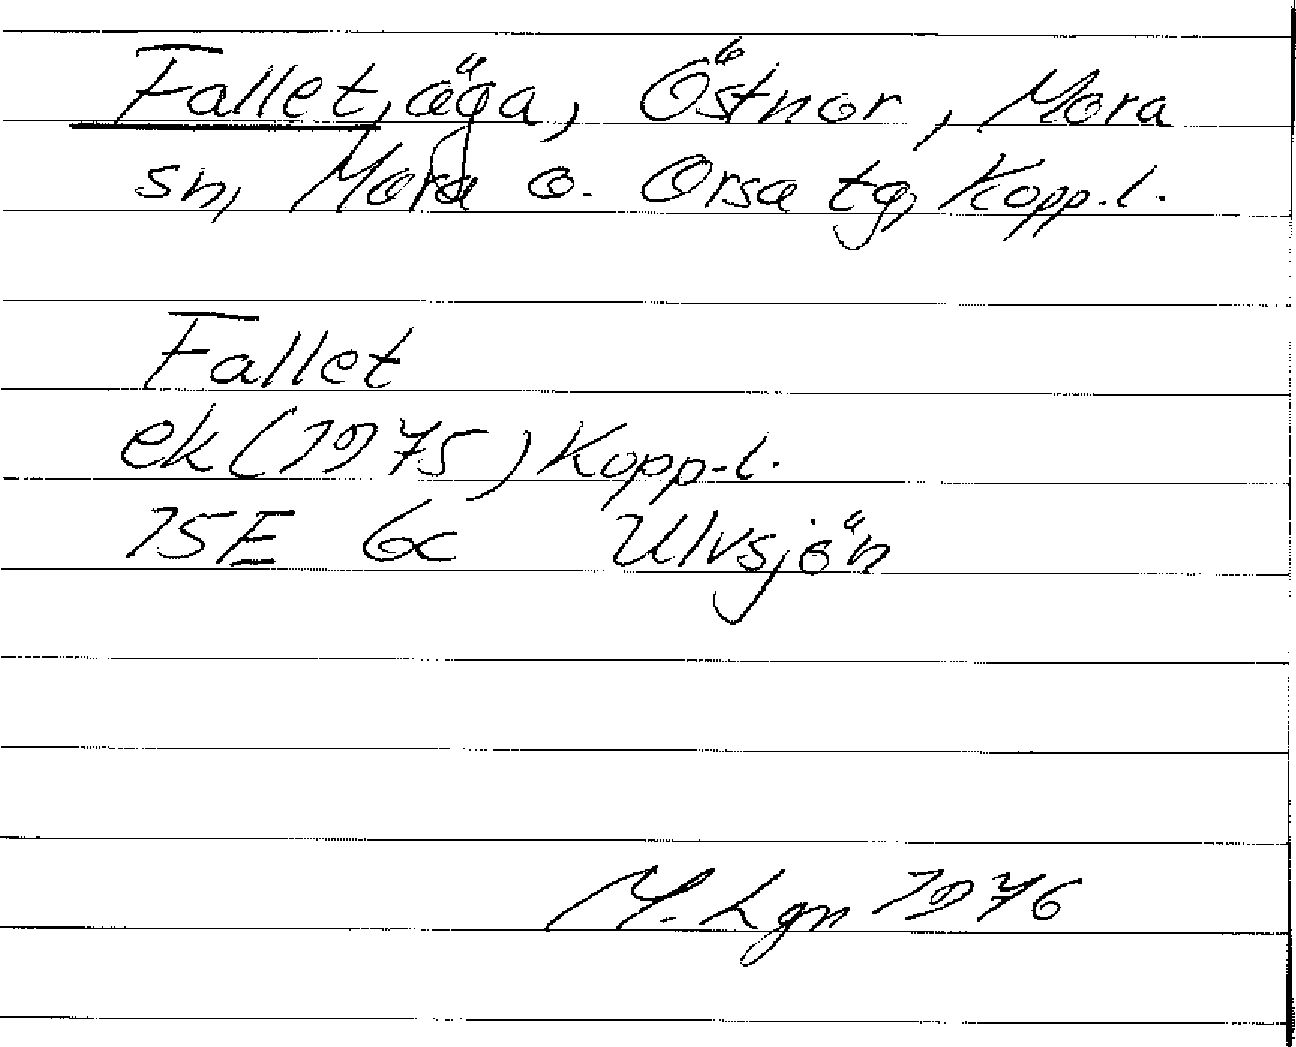 Fallet, äga, Östnor, Mora
sn, Mora o. Orsa tg, Kopp.l.
Fallet
ek (1975) Kopp-l.
15E 6c Ulvsjön
M. Lgn 1976